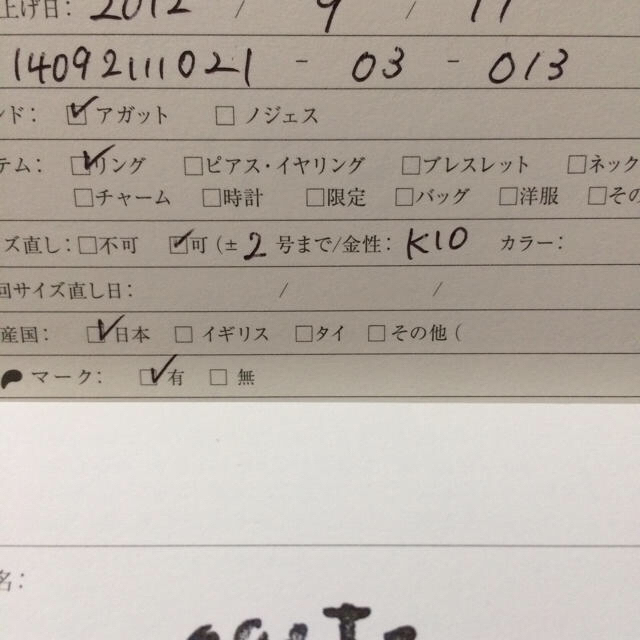 上げ日: 2012 / 9 / 17
14092111021 - 03 - 013
ンド: ☑アガット □ ノジェス
テム: ☑リング □ピアス・イヤリング □ブレスレット □ネック
□チャーム □時計 □限定 □バッグ □洋服 □その
ズ直し: □不可 ☑可 (± 2 号まで/金性: K10 カラー:
回サイズ直し日: / /
産国: ☑日本 □ イギリス □タイ □その他 (
マーク: ☑有 □ 無
名: